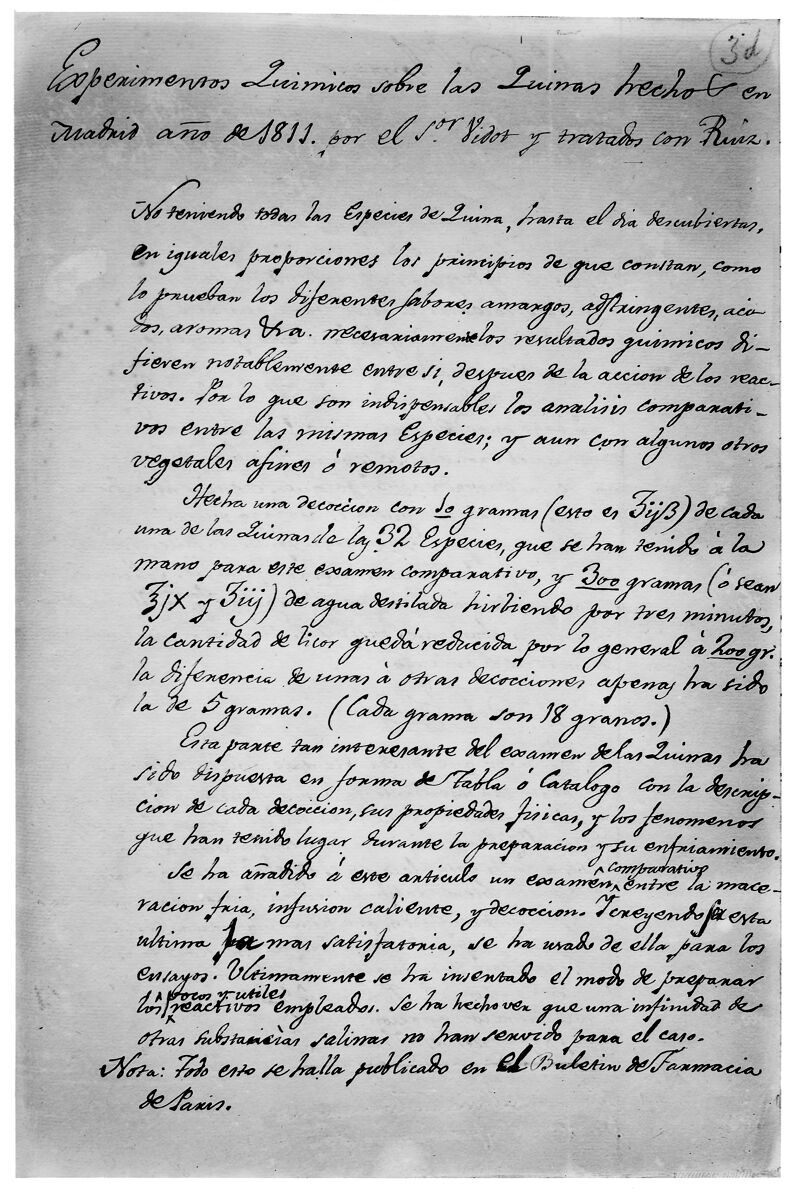 3d
Experimentos Quimicos sobre las Quinas hechos en
Madrid año de 1811. por el S.or Vidot y tratados con Ruiz.
No teniendo todas las Especies de Quina, hasta el dia descubiertas,
en iguales proporciones los principios de que constan, como
lo prueban los diferentes sabores amargos, adstringentes, aci-
dos, aromas &ra. necesariamente los resultados quimicos di-
fieren notablemente entre si, despues de la accion de los reac-
tivos. Por lo que son indispensables los analisis comparati-
vos entre las mismas Especies; y aun con algunos otros
vegetales afines ó remotos.
Hecha una decoccion con 10 gramas (esto es ʒijß) de cada
una de las Quinas de las 32 Especies, que se han tenido à la
mano para este examen comparativo, y 300 gramas (ó sean
℥jx y ʒiij) de agua destilada hirbiendo por tres minutos,
la cantidad de licor quedá reducida por lo general à 200 gr.
la diferencia de unas à otras decocciones apenas ha sido
la de 5 gramas. (Cada grama son 18 granos.)
Esta parte tan interesante del examen de las Quinas ha
sido dispuesta en forma de Tabla ó Catalogo con la descrip-
cion de cada decoccion, sus propiedades fisicas, y los fenomenos
que han tenido lugar durante la preparacion y su enfriamiento.
Se ha añadido à este articulo un examen comparativo entre la mace-
racion fria, infusion caliente, y decoccion. Y creyendo esta
ultima mas satisfatoria, se ha usado de ella para los
ensayos. Ultimamente se ha insentado el modo de preparar
los pocos y utiles reactivos empleados. Se ha hecho ver que una infinidad de
otras substancias salinas no han servido para el caso.
Nota: Todo esto se halla publicado en el Buletin de Farmacia
de Paris.